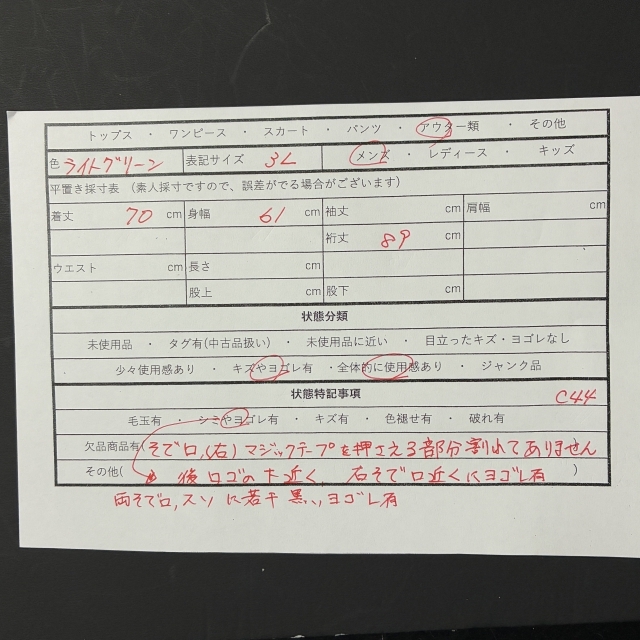 トップス ・ ワンピース ・ スカート ・ パンツ ・ アウター類 ・ その他
色 ライトグリーン 表記サイズ 3L メンズ ・ レディース ・ キッズ
平置き採寸表 (素人採寸ですので、誤差がでる場合がございます)
着丈 70 cm 身幅 61 cm 袖丈 cm 肩幅 cm
裄丈 89 cm
ウエスト cm 長さ cm cm
股上 cm 股下 cm
状態分類
未使用品 ・ タグ有(中古品扱い) ・ 未使用品に近い ・ 目立ったキズ・ヨゴレなし
少々使用感あり ・ キズやヨゴレ有 ・全体的に使用感あり ・ ジャンク品
状態特記事項 C44
毛玉有 ・ シミやヨゴレ有 ・ キズ有 ・ 色褪せ有 ・ 破れ有
欠品商品有(そで口,(右) マジックテープを押さえる部分割れてありません
その他( 後ロゴの下近く、右そで口近くにヨゴレ有 )
両そで口,スソに若干黒いヨゴレ有